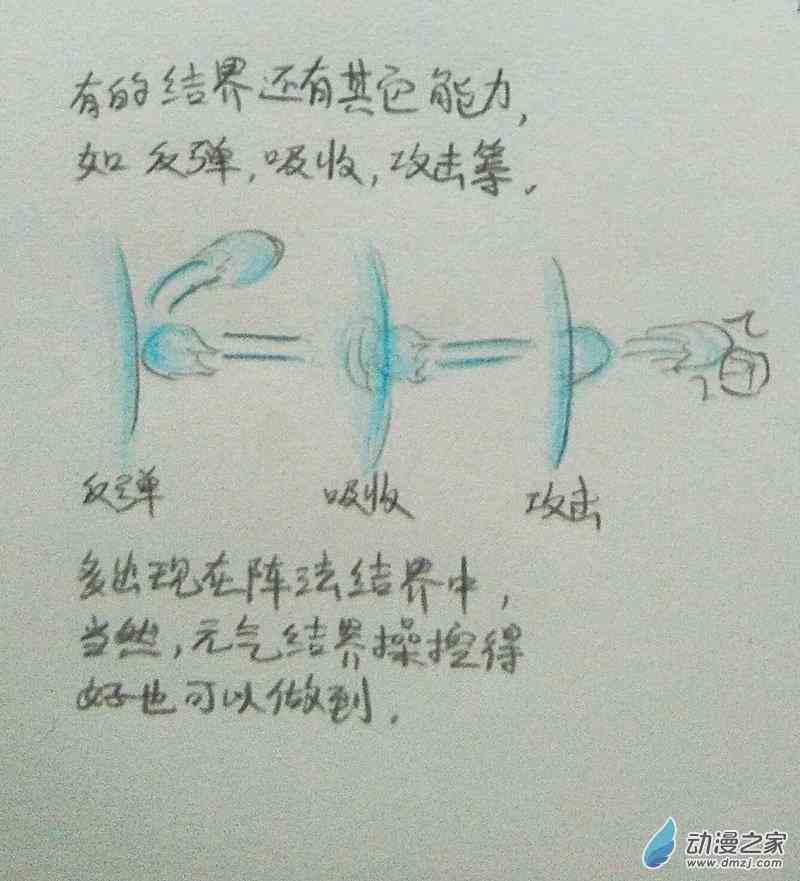 有的结界还有其它能力，
如反弹，吸收，攻击等．
反弹
吸收
攻击
多出现在阵法结界中，
当然，元气结界操控得
好也可以做到．
动漫之家
www.dmzj.com